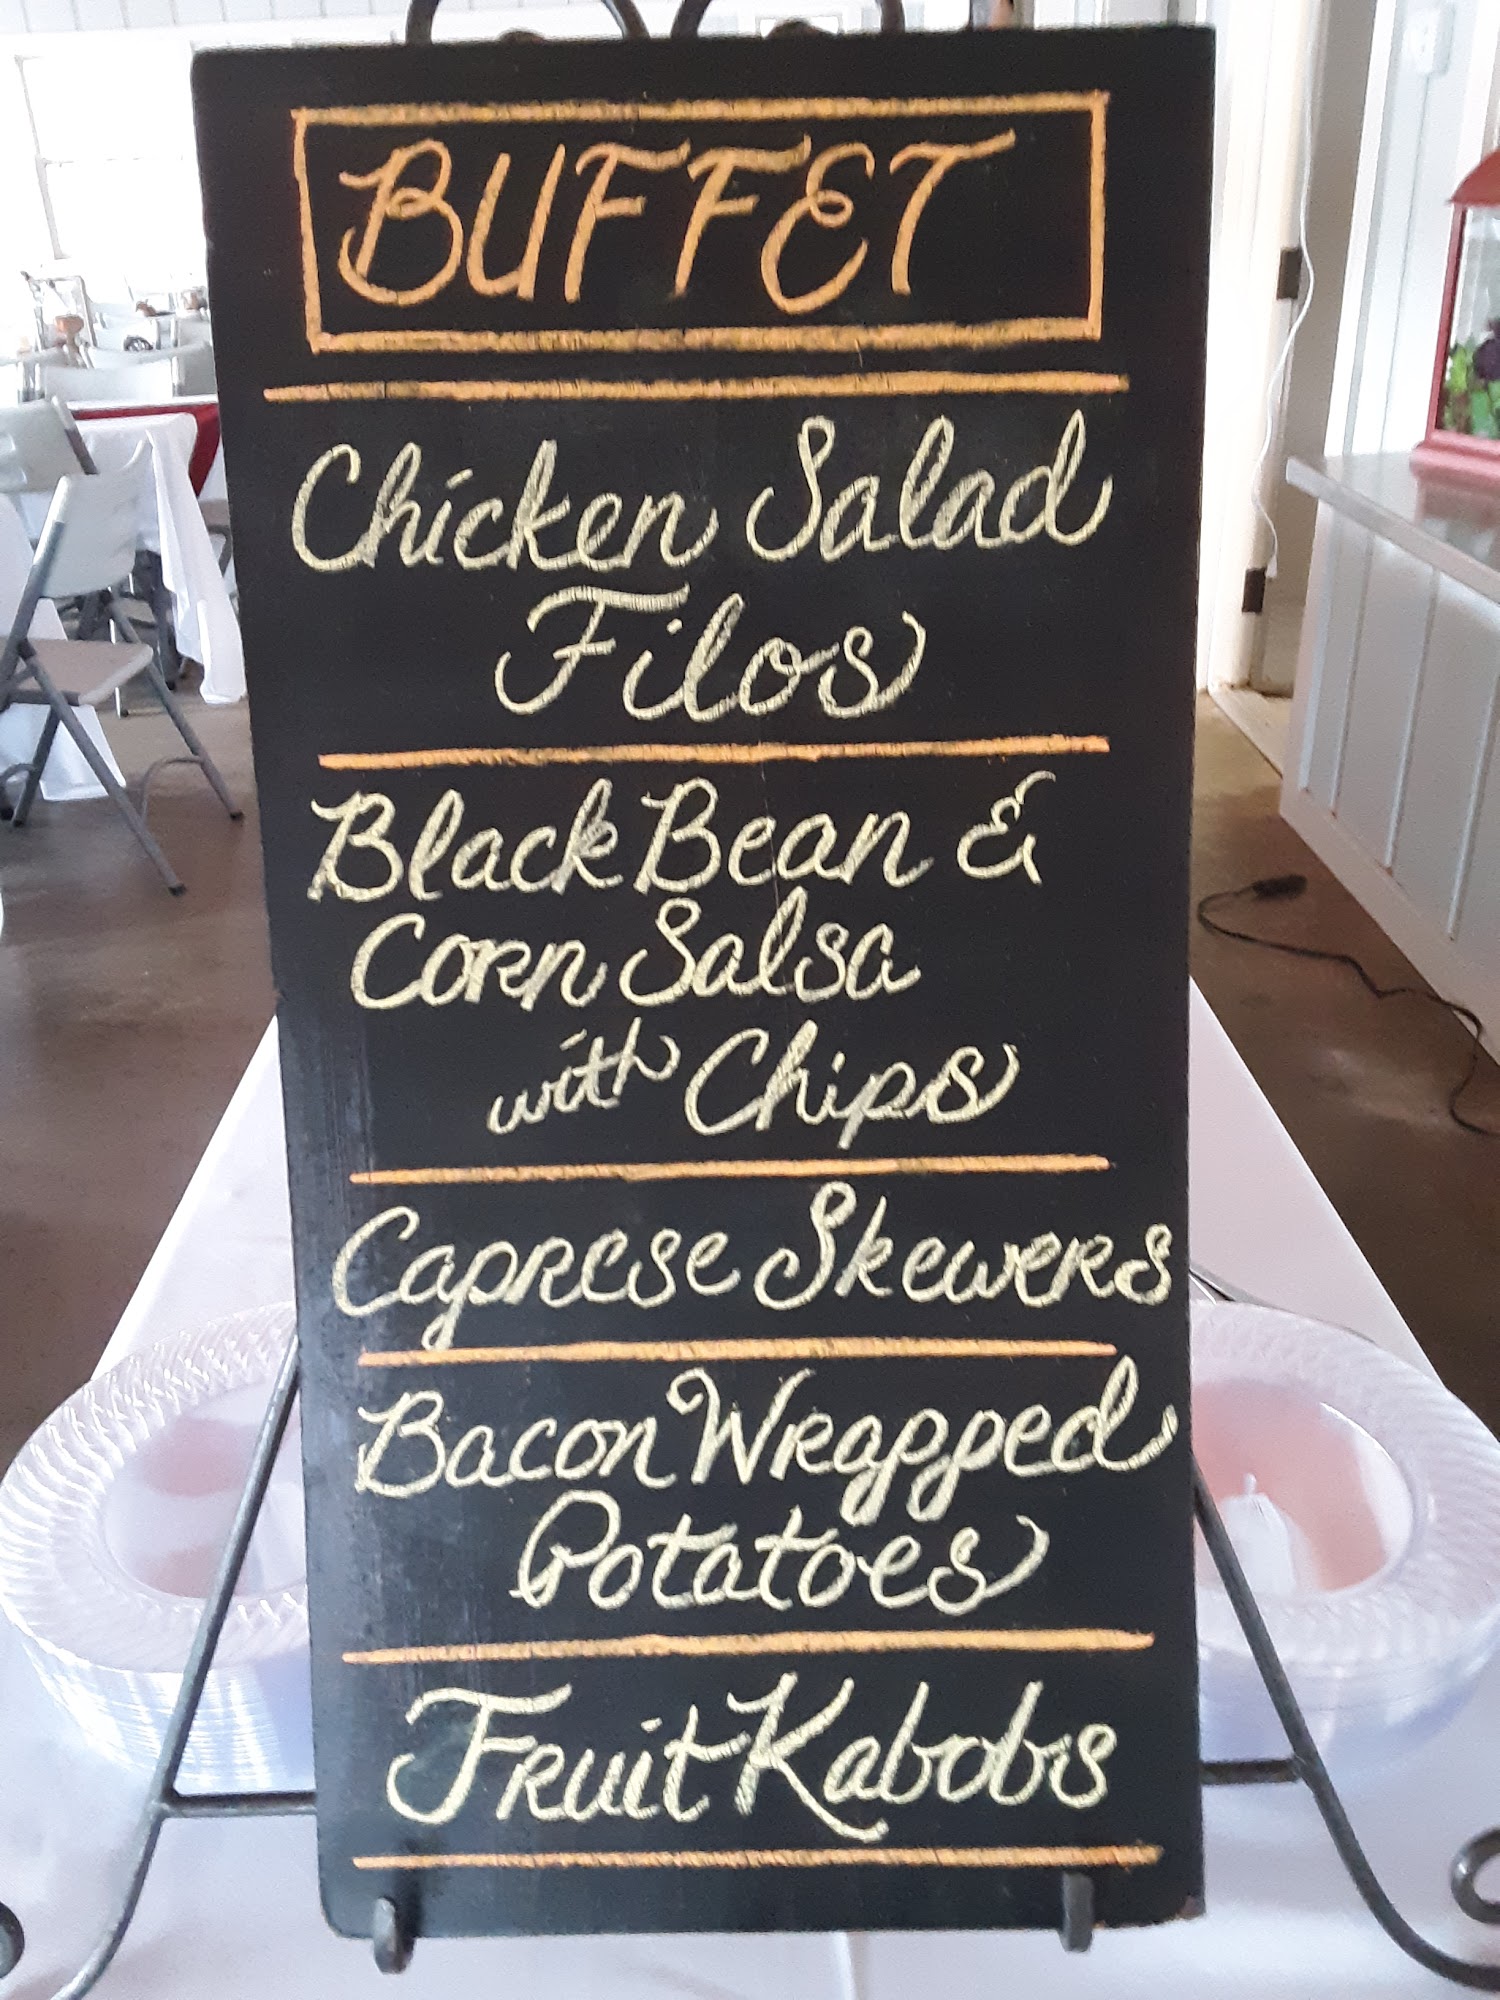 BUFFET
Chicken Salad
Filos
Black Bean &
Corn Salsa
with Chips
Caprese Skewers
Bacon Wrapped
Potatoes
Fruit Kabobs